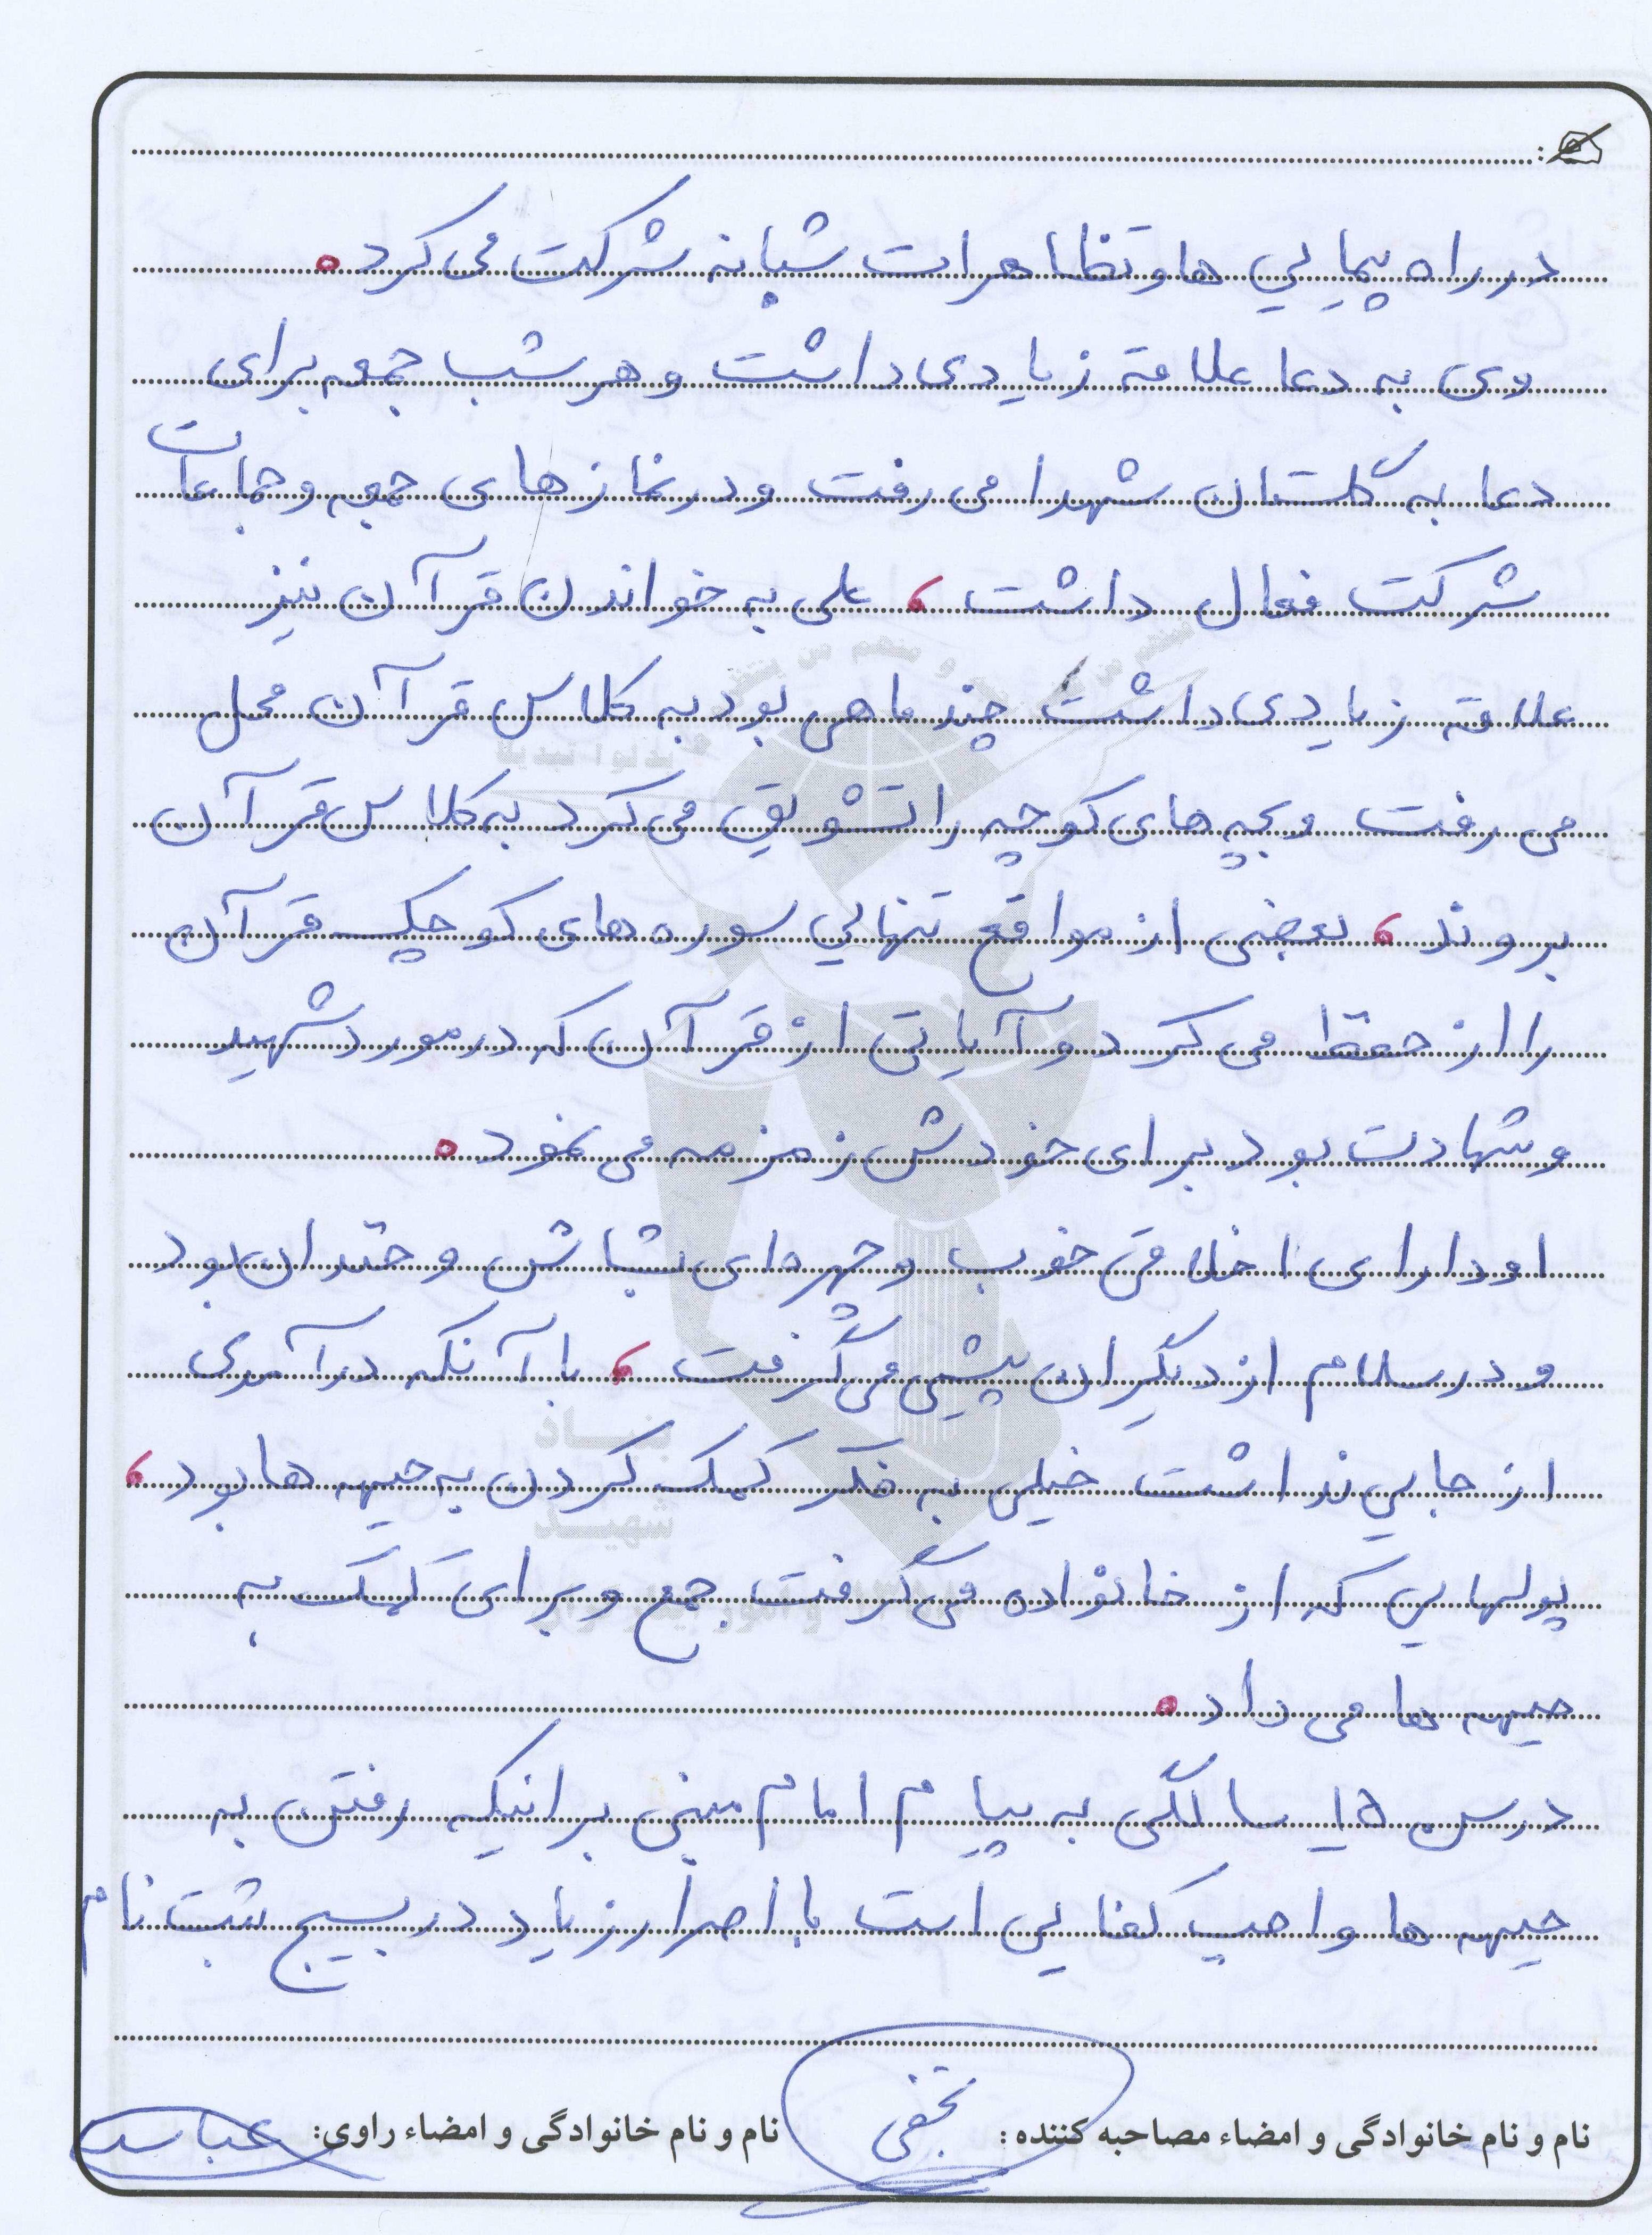 در راه پیمایي ها و تظاهرات شبانه شرکت می کرد.
وی به دعا علاقه زیادی داشت و هر شب جمعه برای
دعا به گلستان شهدا می رفت و در نمازهای جمعه و جماعات
شرکت فعال داشت، علی به خواندن قرآن نیز
علاقه زیادی داشت چند ماهی بود به کلاس قرآن محل
می رفت و بچه های کوچه را تشویق می کرد به کلاس قرآن
بروند، بعضی از مواقع تنهایي سوره های کوچک قرآن
را از حفظ می کرد و آیاتی از قرآن که در مورد شهید
و شهادت بود برای خودش زمزمه می نمود.
او دارای اخلاقی خوب و چهره ای بشاش و خندان بود
و در سلام از دیگران پیشی می گرفت، با آنکه درآمدی
از جایي نداشت خیلی به فکر کمک کردن به جبهه ها بود،
پولهایي که از خانواده می گرفت جمع و برای کمک به
جبهه ها می داد.
درسن ۱۵ سالگی به پیام امام مبنی بر اینکه رفتن به
جبهه ها واجب کفایي است با اصرار زیاد در بسیج ثبت نام
نام و نام خانوادگی و امضاء مصاحبه کننده: نجفی نام و نام خانوادگی و امضاء راوی:
بنیاد
شهید